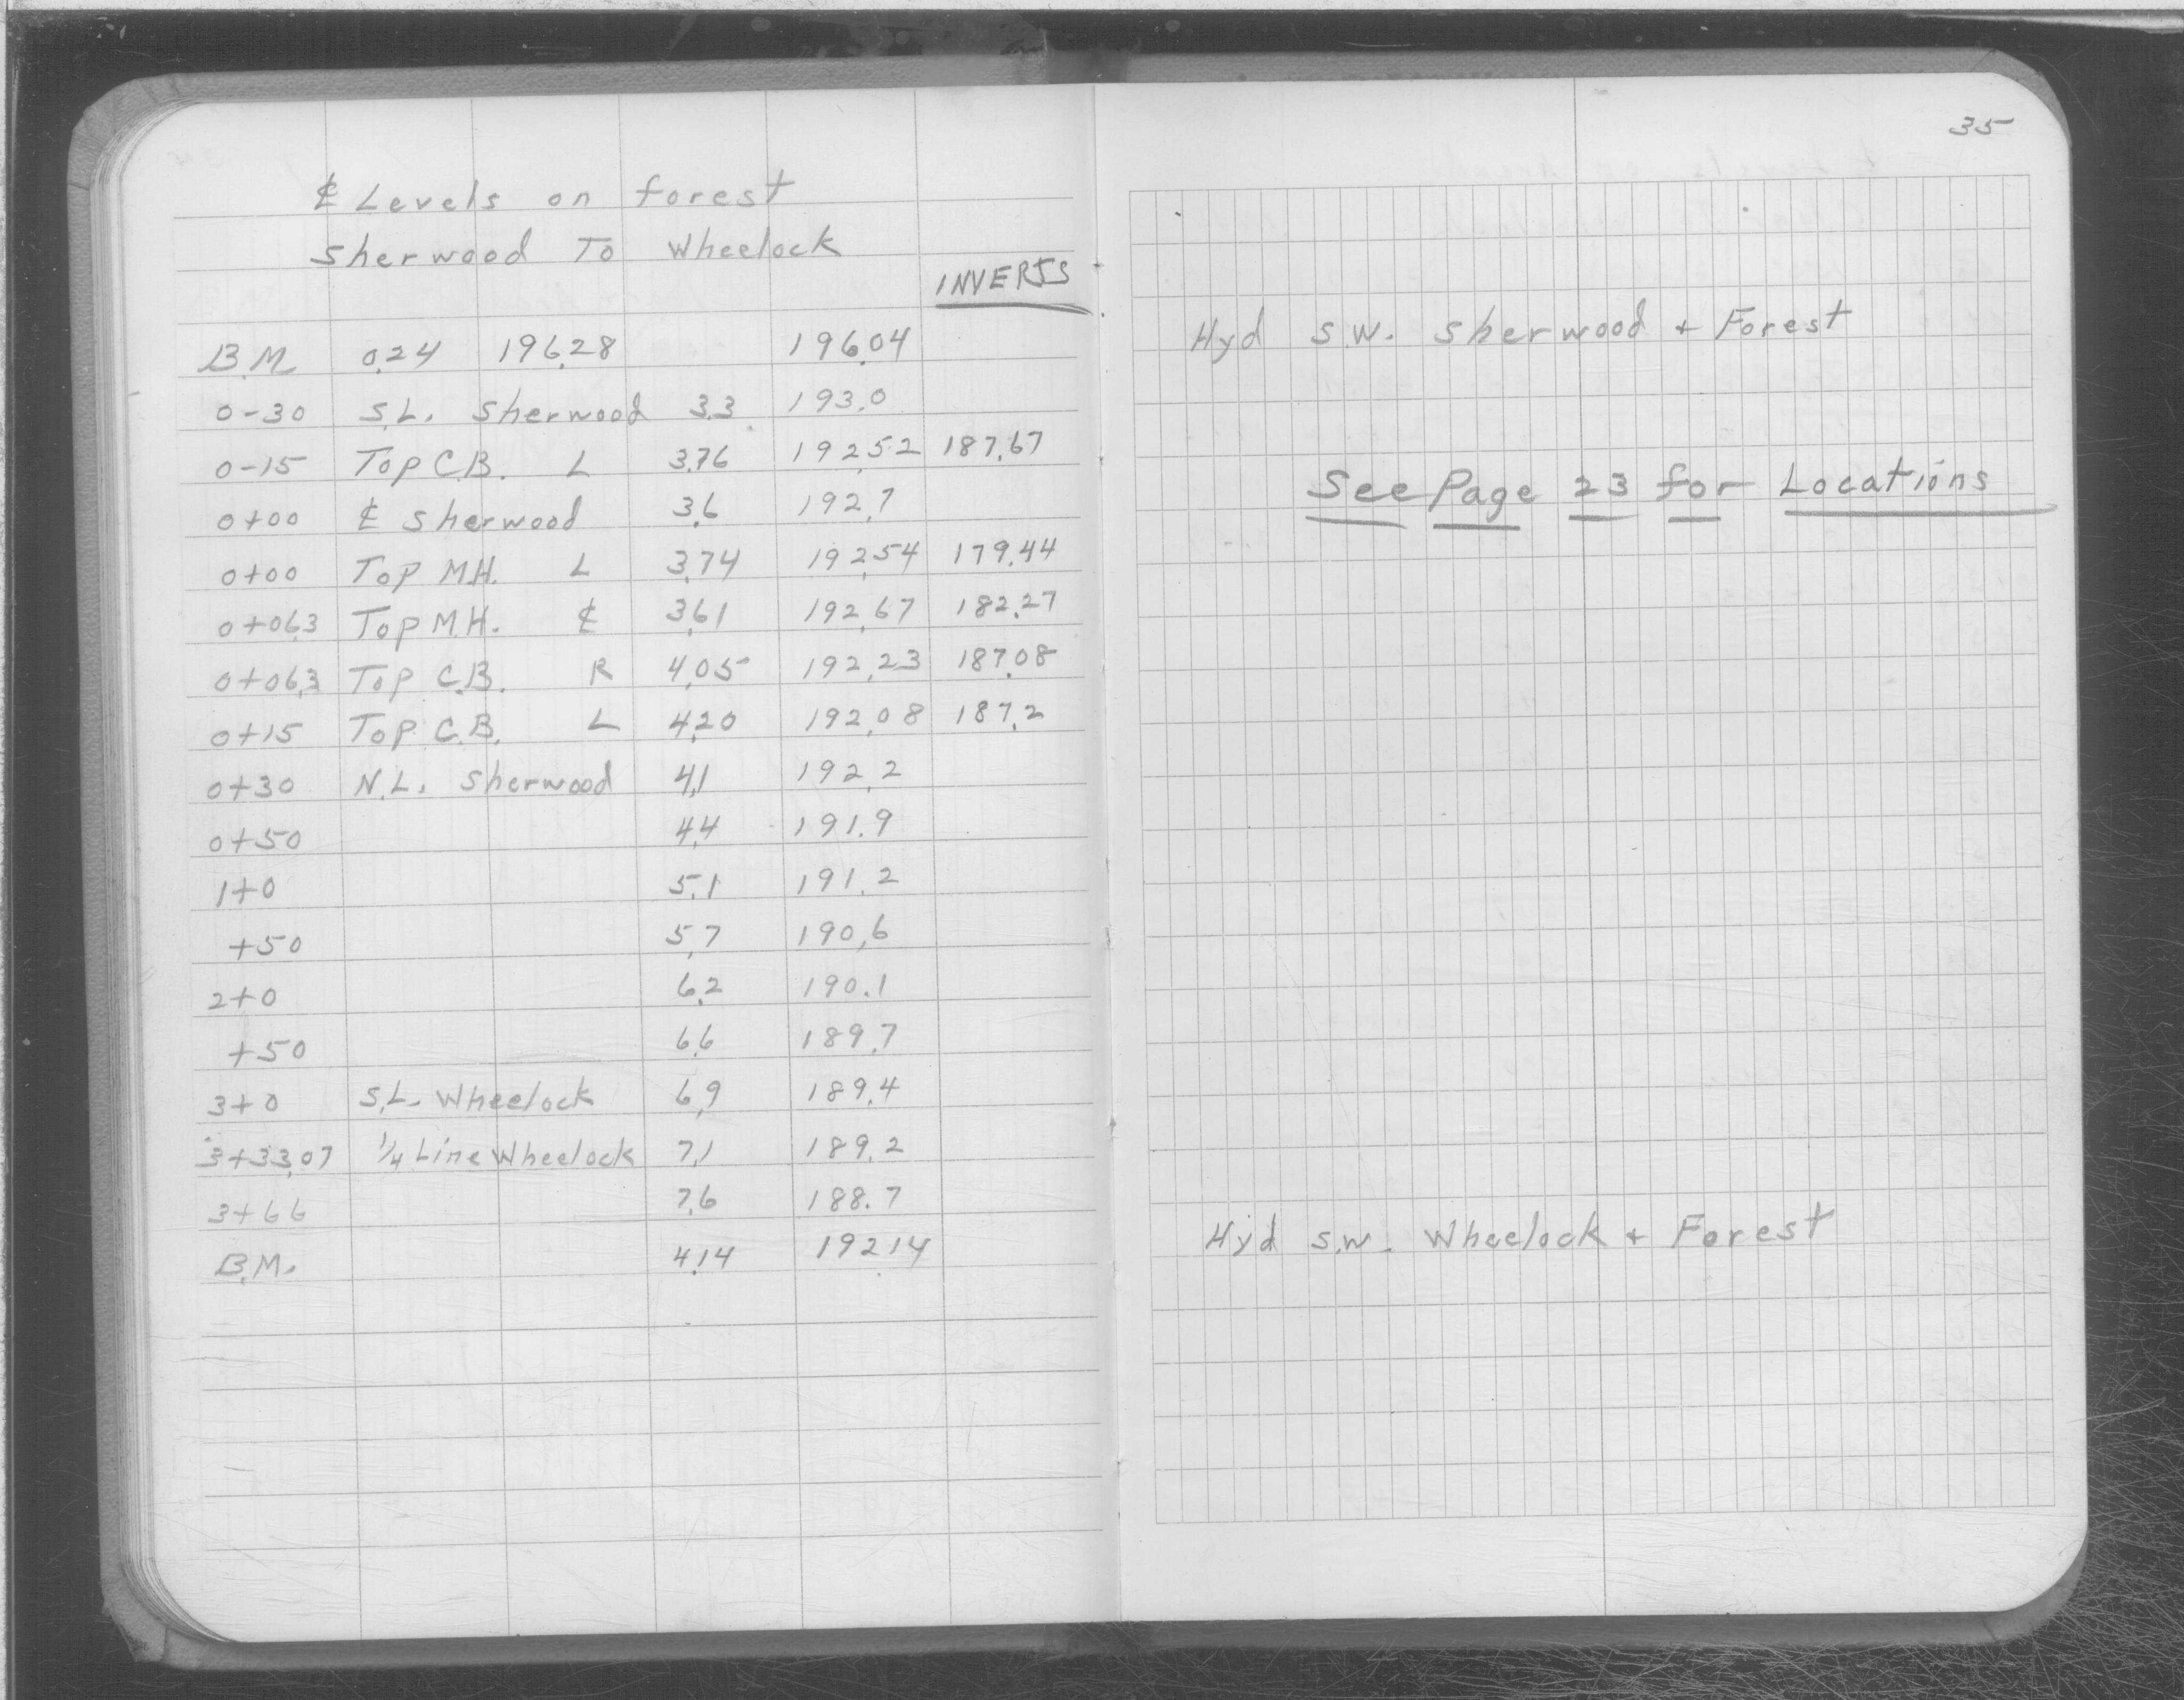 ℄ Levels on forest
Sherwood To Wheelock
INVERTS
B.M. 0.24 196.28 196.04
0-30 S.L. Sherwood 3.3 193.0
0-15 Top C.B. L 3.76 192.52 187.67
0+00 ℄ Sherwood 3.6 192.7
0+00 Top M.H. L 3.74 192.54 179.44
0+06.3 Top M.H. ℄ 3.61 192.67 182.27
0+06.3 Top C.B. R 4.05 192.23 187.08
0+15 Top C.B. L 4.20 192.08 187.2
0+30 N.L. Sherwood 4.1 192.2
0+50 4.4 191.9
1+0 5.1 191.2
+50 5.7 190.6
2+0 6.2 190.1
+50 6.6 189.7
3+0 S.L. Wheelock 6.9 189.4
3+33.07 1/4 Line Wheelock 7.1 189.2
3+66 7.6 188.7
B.M. 4.14 192.14
35
Hyd S.W. Sherwood + Forest
See Page 23 for Locations
Hyd S.W. Wheelock + Forest